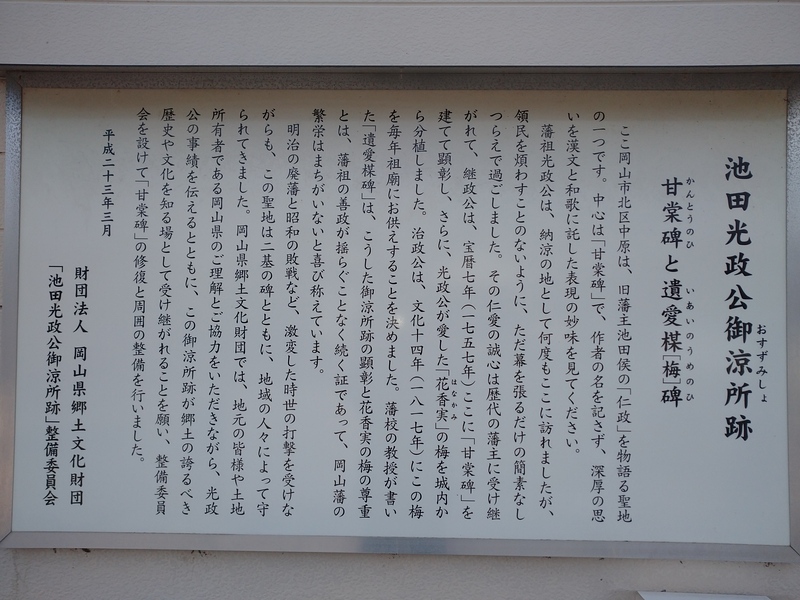 池田光政公御涼所跡
おすずみしょ
甘棠碑と遺愛楳［梅］碑
かんとうのひ
いあいのうめのひ
ここ岡山市北区中原は、旧藩主池田侯の「仁政」を物語る聖地
の一つです。中心は「甘棠碑」で、作者の名を記さず、深厚の思
いを漢文と和歌に託した表現の妙味を見てください。
藩祖光政公は、納涼の地として何度もここに訪れましたが、
領民を煩わすことのないように、ただ幕を張るだけの簡素なし
つらえで過ごしました。その仁愛の誠心は歴代の藩主に受け継
がれて、継政公は、宝暦七年（一七五七年）ここに「甘棠碑」を
建てて顕彰し、さらに、光政公が愛した「花香実」の梅を城内か
はなかみ
ら分植しました。治政公は、文化十四年（一八一七年）にこの梅
を毎年祖廟にお供えすることを決めました。藩校の教授が書い
た「遺愛楳碑」は、こうした御涼所跡の顕彰と花香実の梅の尊重
とは、藩祖の善政が揺らぐことなく続く証であって、岡山藩の
繁栄はまちがいないと喜び称えています。
明治の廃藩と昭和の敗戦など、激変した時世の打撃を受けな
がらも、この聖地は二基の碑とともに、地域の人々によって守
られてきました。岡山県郷土文化財団では、地元の皆様や土地
所有者である岡山県のご理解とご協力をいただきながら、光政
公の事績を伝えるとともに、この御涼所跡が郷土の誇るべき
歴史や文化を知る場として受け継がれることを願い、整備委員
会を設けて「甘棠碑」の修復と周囲の整備を行いました。
平成二十三年三月
財団法人 岡山県郷土文化財団
「池田光政公御涼所跡」整備委員会